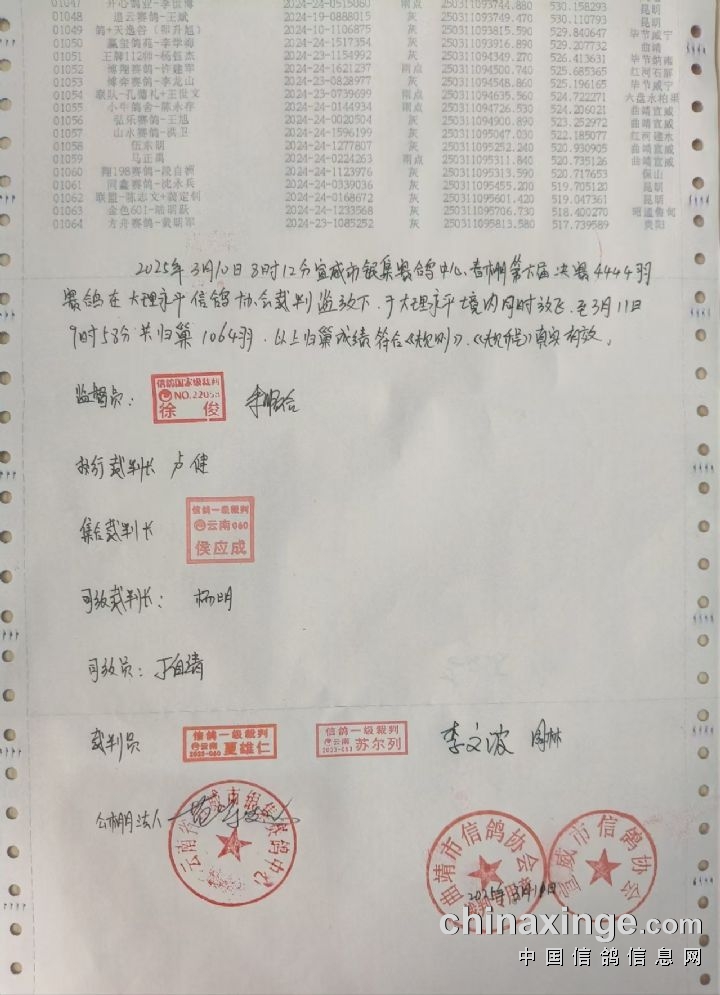 01047 开心鸽业-李世海 2024-24-0515060 灰 250311093744.880 530.158293 昆明
01048 追云赛鸽-王斌 2024-19-0888015 灰 250311093749.470 530.110793 昆明
01049 2024-24-1106875 灰 250311093815.590 529.840647 毕节威宁
01050 2024-24-1517354 灰 250311093916.890 529.207732 曲靖
01051 2024-24-1154992 灰 250311094349.270 526.413631
01052 博翔赛鸽-许建军 2024-24-1621237 雨点 250311094500.740 525.685365 红河石屏
01053 博奔赛鸽-李龙山 2024-23-0828977 灰 250311094548.860 525.196165 毕节威宁
01054 2024-23-0739699 雨点 250311094635.560 524.722271
01055 小牛鸽舍-陈永存 2024-24-0144934 雨点 250311094726.530 524.206021 曲靖宣威
01056 弘乐赛鸽-王旭 2024-24-0020504 灰 250311094900.890 523.252972 曲靖宣威
01057 山水赛鸽-洪卫 2024-24-1596199 灰 250311095047.030 522.185077 红河建水
01058 伍东明 2024-24-1277807 灰 250311095252.240 520.930905 曲靖宣威
01059 马正禹 2024-24-0224263 雨点 250311095311.840 520.735126 曲靖宣威
01060 翔198赛鸽-段自洲 2024-24-1123976 灰 250311095313.590 520.717653 保山
01061 同鑫赛鸽-沈永兵 2024-24-0339036 灰 250311095455.200 519.705120 昆明
01062 联盟-陈志文+龚定钊 2024-24-0168672 灰 250311095601.420 519.047361 昆明
01063 金色601-陆明跃 2024-24-1233568 灰 250311095706.730 518.400270 昭通鲁甸
01064 方舟赛鸽-戴明军 2024-23-1085252 灰 250311095813.580 517.739589 贵阳
2025年3月10日8时12分宣威市银集赛鸽中心、春棚第六届决赛4444羽
赛鸽在大理永平信鸽协会裁判监放下，于大理永平境内同时放飞，至3月11日
9时58分共归巢1064羽。以上归巢成绩符合《规则》、《规程》真实有效。
监督员：
信鸽国家级裁判
NO.22058
徐俊
执行裁判长 卢健
集鸽裁判长
信鸽一级裁判
云南060
侯应成
司放裁判长： 杨明
司放员：丁自清
裁判员
信鸽一级裁判
云南
2023-060 夏雄仁
信鸽一级裁判
云南
苏尔列
李文波 周林
公棚法人
云南省宣威市银集赛鸽中心
曲靖市信鸽协会
宣威市信鸽协会
2025年3月10日
chinaxinge.com
中国信鸽信息网